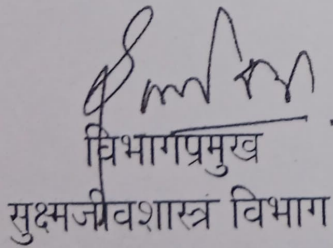 विभागप्रमुख
सुक्ष्मजीवशास्त्र विभाग